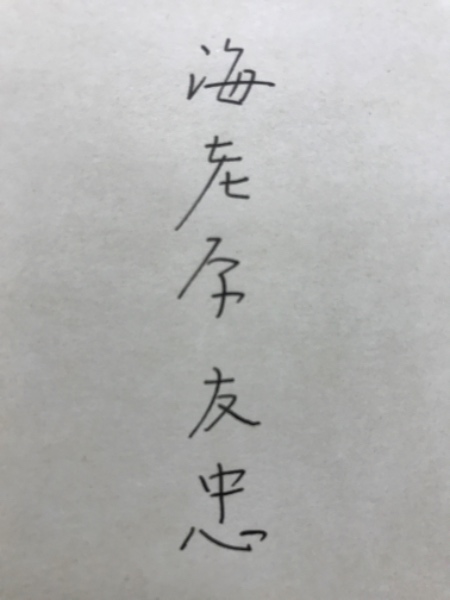 海老原友忠